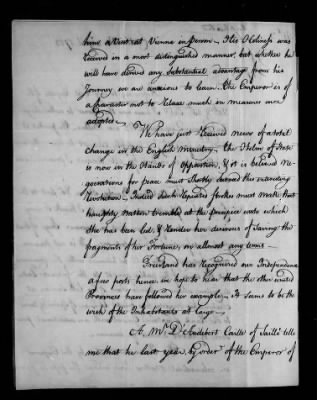 him a Visit at Vienna in person. His Holiness was
received in a most distinguished manner, but whether he
will have derived any Substantial advantage from his
Journey we are anxious to learn. the Emperor is of
a character not to relax much in measures once
adopted.
We have just received news of a total
change in the English ministry. The Helm of State
is now in the Hands of Opposition, & it is believed Ne-
gociations for peace must Shortly succeed this interesting
Revolution. Indeed Such repeated strokes must make that
haughty nation tremble at the precipice onto which
She has been led, & render her desirous of Saving the
fragments of her Fortune, on almost any terms
Friesland has recognized our Independence
a few posts hence we hope to hear that the other united
Provinces have followed her example. it Seems to be the
wish of the Inhabitants at large.
A Mr. D'Audibert Caille of Salle tells
me that he last year, by order of the Emperor of